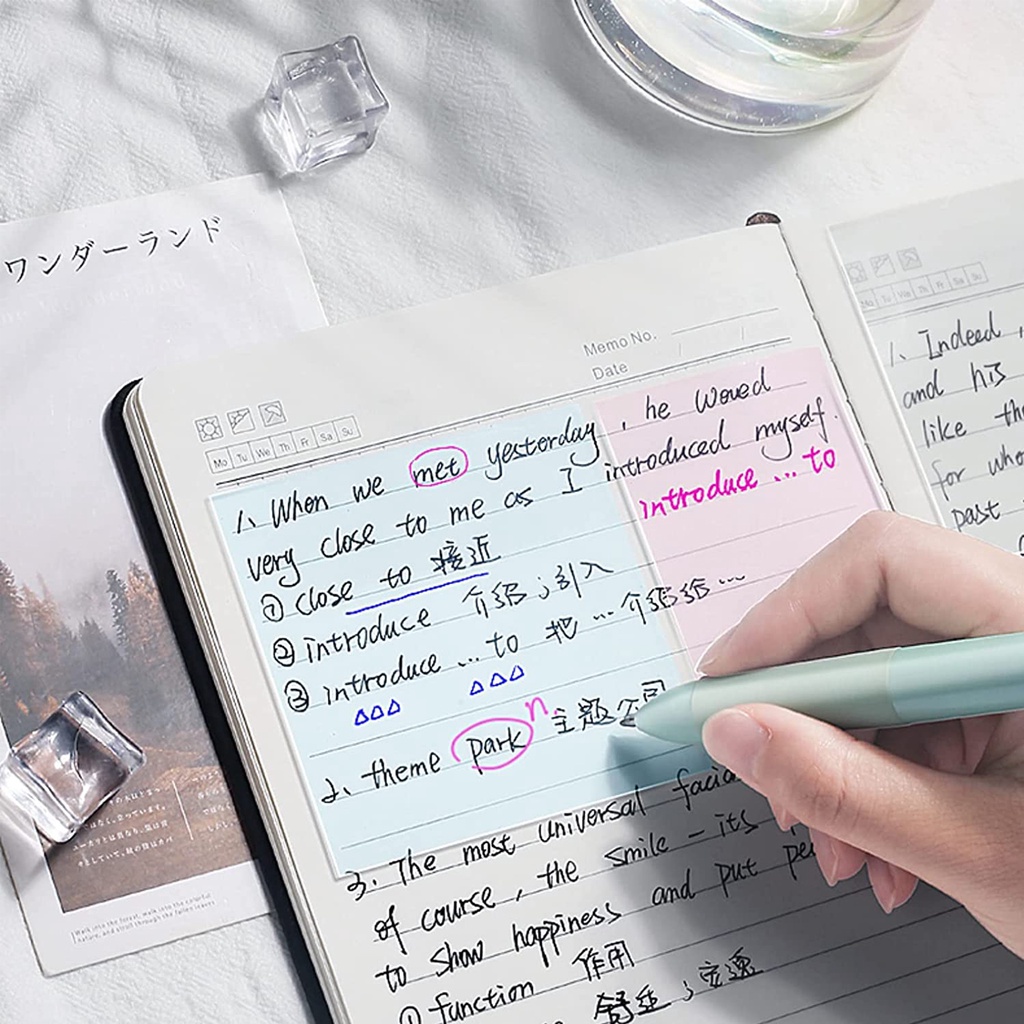 ワンダーランド
Memo No.
Date
Mo Tu We Th Fr Sa Su
1、When we met yesterday, he woved
very close to me as I introduced myself.
introduce ... to
① close to 接近
② introduce 介绍；引入
③ introduce ... to 把 ... 介绍给 ...
2、theme park n. 主题公园
3. The most universal
of course, the smile - its
to show happiness and put
① function 作用
舒适；安逸
Walk into the forest, walk into the colorful
nature, and stroll through the fallen leaves
Mo Tu We Th Fr Sa Su
1、Indeed,
and his
like
for
past